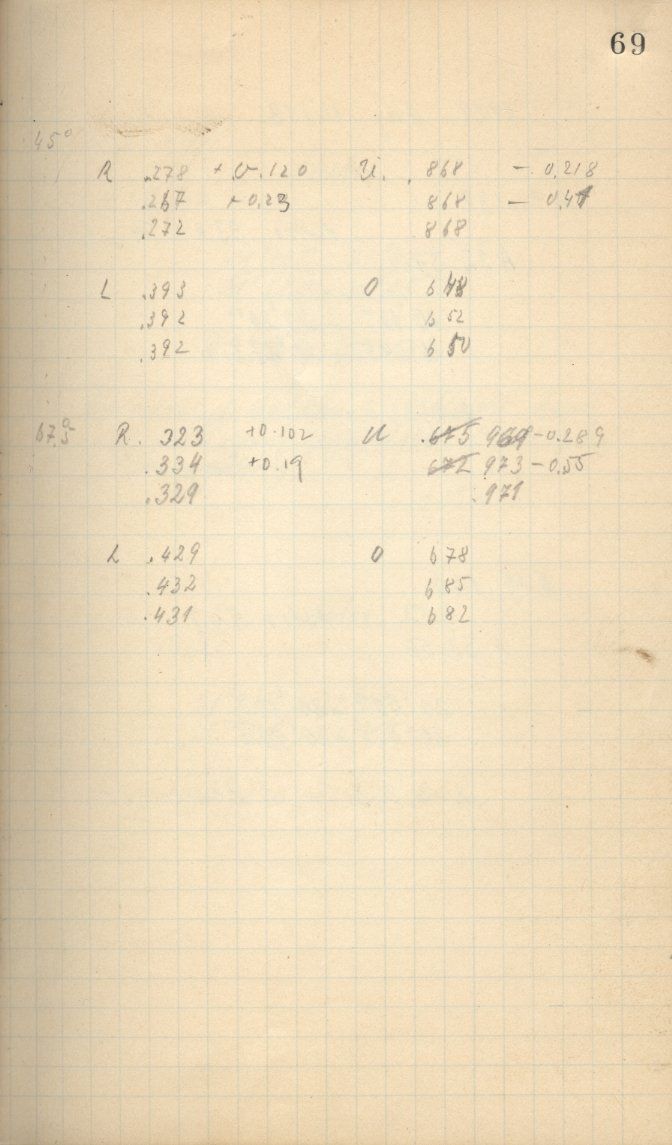 69
45°
R .278 + 0.120 U. .868 - 0.218
.267 + 0.23 868 - 0.41
.272 868
L .393 O 648
.392 652
.392 650
67.5° R. 323 +0.102 U .675 969 -0.289
.334 +0.19 672 973 -0.55
.329 .971
L .429 O 678
.432 685
.431 682